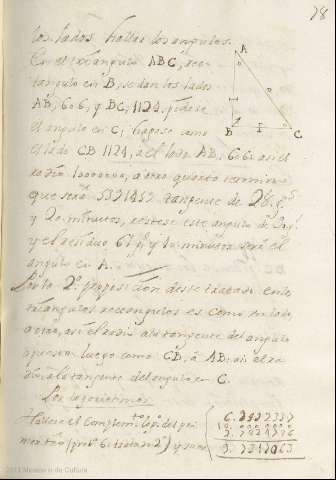 78
los lados hallar los angulos.
En el triangulo ABC, rec-
tangulo en B, se dan los lados
AB, 606, y BC, 1124. pidese
el angulo en C, hagase como
el lado CB 1124, a el lado AB, 606. asi el
radio 10000000, a otro quarto termino
que sera 5391459 tangente de 28. g.s
y 20. minutos, restese este angulo de 90 g.s
y el residuo, 61 g.s y 40. minutos sera el
angulo en A.
Por la 2ª proposicion deste tratado en los
triangulos rectangulos es como un lado
a otro, asi el radio a la tangente del angulo
opuesto. luego como CB, a AB, asi el ra-
dio a la tangente del angulo en C.
Por logarithmos
Hallese el Complem.to log.o del pri-
mer termino (prop. 6. tratado 2) y sume
A
B
C